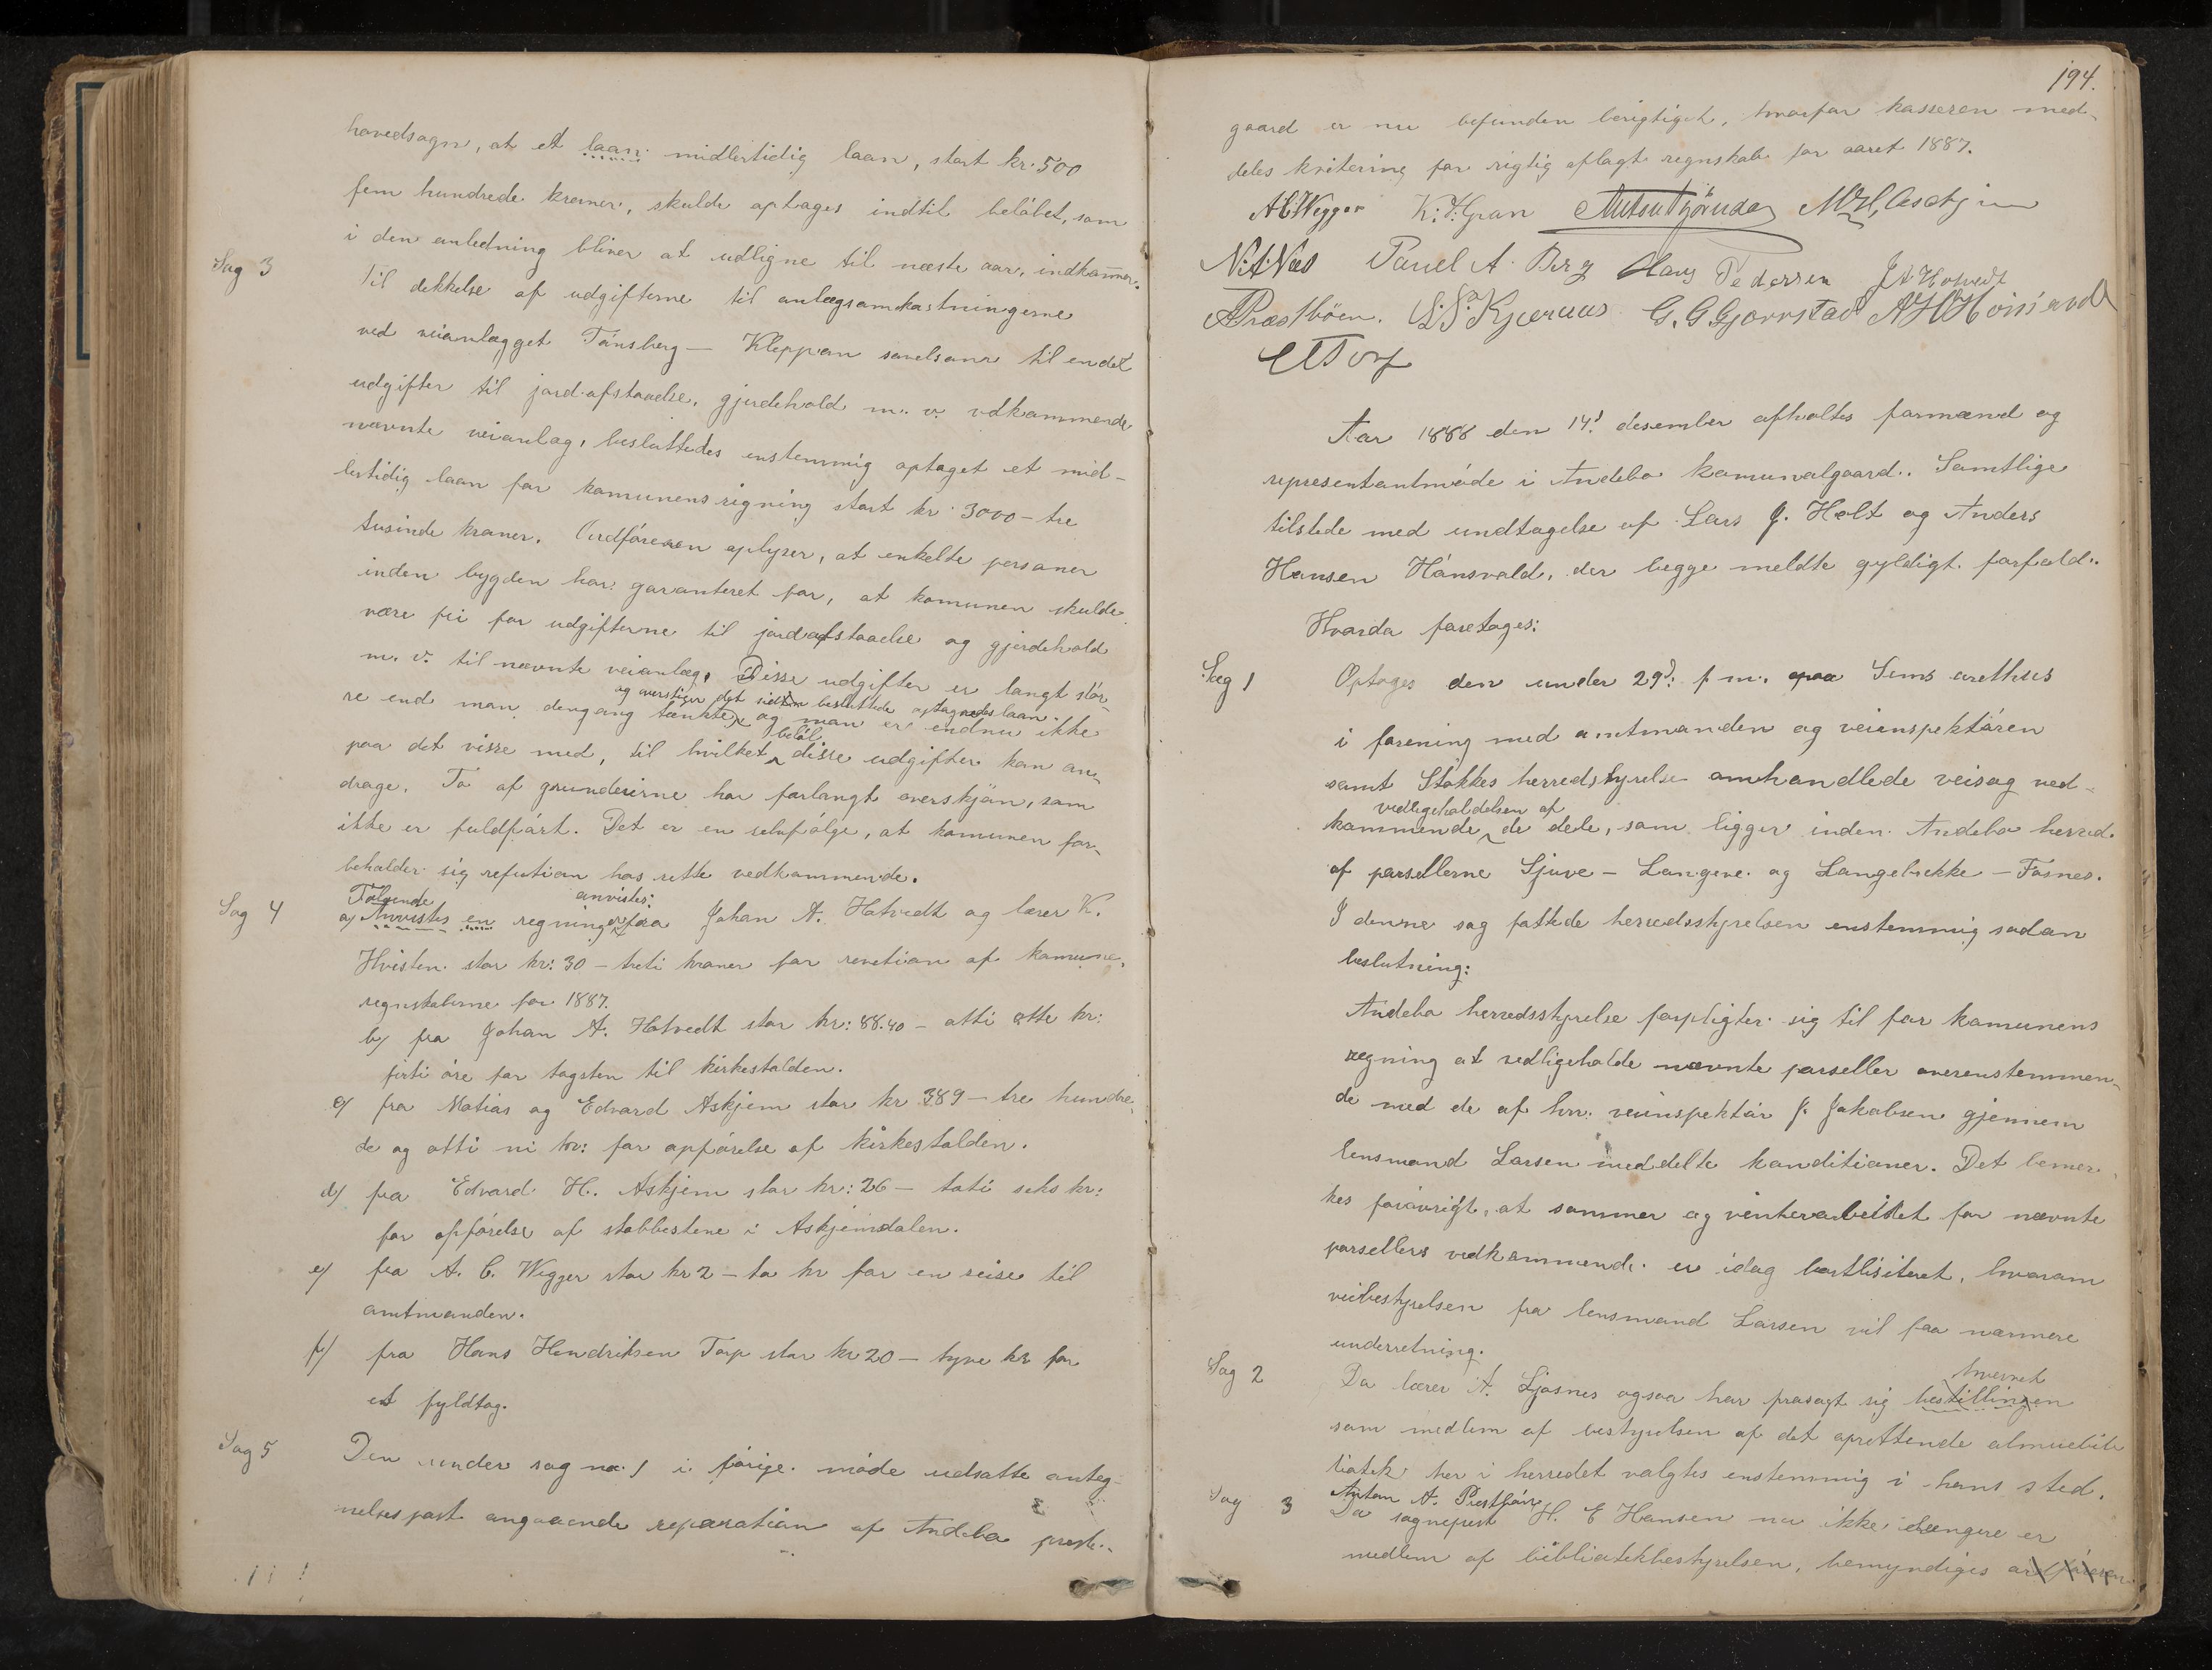 hovedsogn, at et laan midlertidig laan, stort kr. 500
fem hundrede kroner, skulde optages indtil beløbet, som
i den anledning bliver at udligne til næste aar, indkommer.
Sag 3 Til dekkelse af udgifterne til anlægsomkostningerne
ved veianlægget Tønsberg — Kleppan savelsom til endel
udgifter til jordafstaaelse, gjerdehold m. v. vedkommende
nævnte veianlæg, besluttedes enstemmig optaget et mid-
lertidig laan for komunens regning stort kr 3000 — tre
tusinde kroner. Ordføreren oplyser, at enkelte personer
inden bygden har garanteret for, at komunen skulde
være fri for udgifterne til jordafstaaelse og gjerdehold
m. v. til nævnte veianlæg. Disse udgifter er langt stør-
og overstiger det besluttede optagne laan.
re end man dengang tænkte, og man er endnu ikke
beløb
paa det visse med, til hvilket disse udgifter kan an-
drage. To af grundeierne har forlangt overskjøn, som
ikke er fuldført. Det er en selvfølge, at komunen for-
beholder sig refution hos rette vedkommende.
Følgende anvistes:
Sag 4 a) Anvistes en regninger fra Johan A. Hotvedt og lærer K.
Hvisten stor kr: 30 — treti kroner for revetion af komune-
regnskaberne for 1887.
b) fra Johan A. Hotvedt stor kr: 88.40 — otti otte kr:
firti øre for tagsten til kirkestalden.
c) fra Matias og Edvard Askjem stor kr 389 — tre hundre-
de og otti ni kr: for opførelse af kirkestalden.
d) fra Edvard H. Askjem stor kr: 26 — toti seks kr:
for opførelse af stabbestene i Askjemdalen.
e) fra A. C. Wegger stor kr 2 — to kr for en reise til
amtmanden.
f) fra Hans Hendriksen Torp stor kr 20 — tyve kr for
et fyldtag.
Sag 5 Den under sag no. 1 i forige møde udsatte anteg-
nelsespost angaaende reparation af Andebo preste-
194.
gaard er nu befunden berigtiget, hvorfor kasseren med-
deles kvitering for rigtig aflagt regnskab for aaret 1887.
A C Wegger K. T. Gran M. H. Askjem
N. A. Næs Pauel A. Berg Hans Pedersen J. A. Hotvedt
A Præstbøen. S. S. Kjærnaas G. G Gjerrstad A H Hönsvald
Torp
Aar 1888 den 14de desember afholtes formænd og
representantmøde i Andebo komunalgaard. Samtlige
tilstede med undtagelse af Lars J. Holt og Anders
Hansen Hønsvald, der begge meldte gyldigt forfald.
Hvorda foretoges:
Sag 1 Optoges den under 29de f. m. paa Sems
i forening med amtmanden og veiinspektøren
samt Stokkes herredstyrelse omhandlede veisag ved-
vedligeholdelsen af
kommende de dele, som ligger inden Andebo herred
af parsellerne Gjuve — Langeve og Langebrekke — Fosnes.
I denne sag fattede herredsstyrelsen enstemmig sodan
beslutning:
Andebo herredsstyrelse forpligter sig til for komunens
regning at vedligeholde nævnte parseller overenstemmen-
de med de af hrr. veiinspektør J. Jakobsen gjennem
lensmand Larsen meddelte konditioner. Det bemer-
kes forøvrigt, at sommer og vinterarbeidet for nævnte
parsellers vedkommende er idag bortlisiteret, hvorom
veibestyrelsen fra lensmand Larsen vil faa nærmere
underretning.
Sag 2 Da lærer A. Ljosnes ogsaa har frasagt sig bestillingen
hvervet
som medlem af bestyrelsen af det oprettende almuebib-
liotek her i herredet valgtes enstemmig i hans sted.
Anton A. Prestbøen
Sag 3 Da sogneprest H. E Hansen nu ikke længere er
medlem af bibliotekbestyrelsen, bemyndiges ordføreren